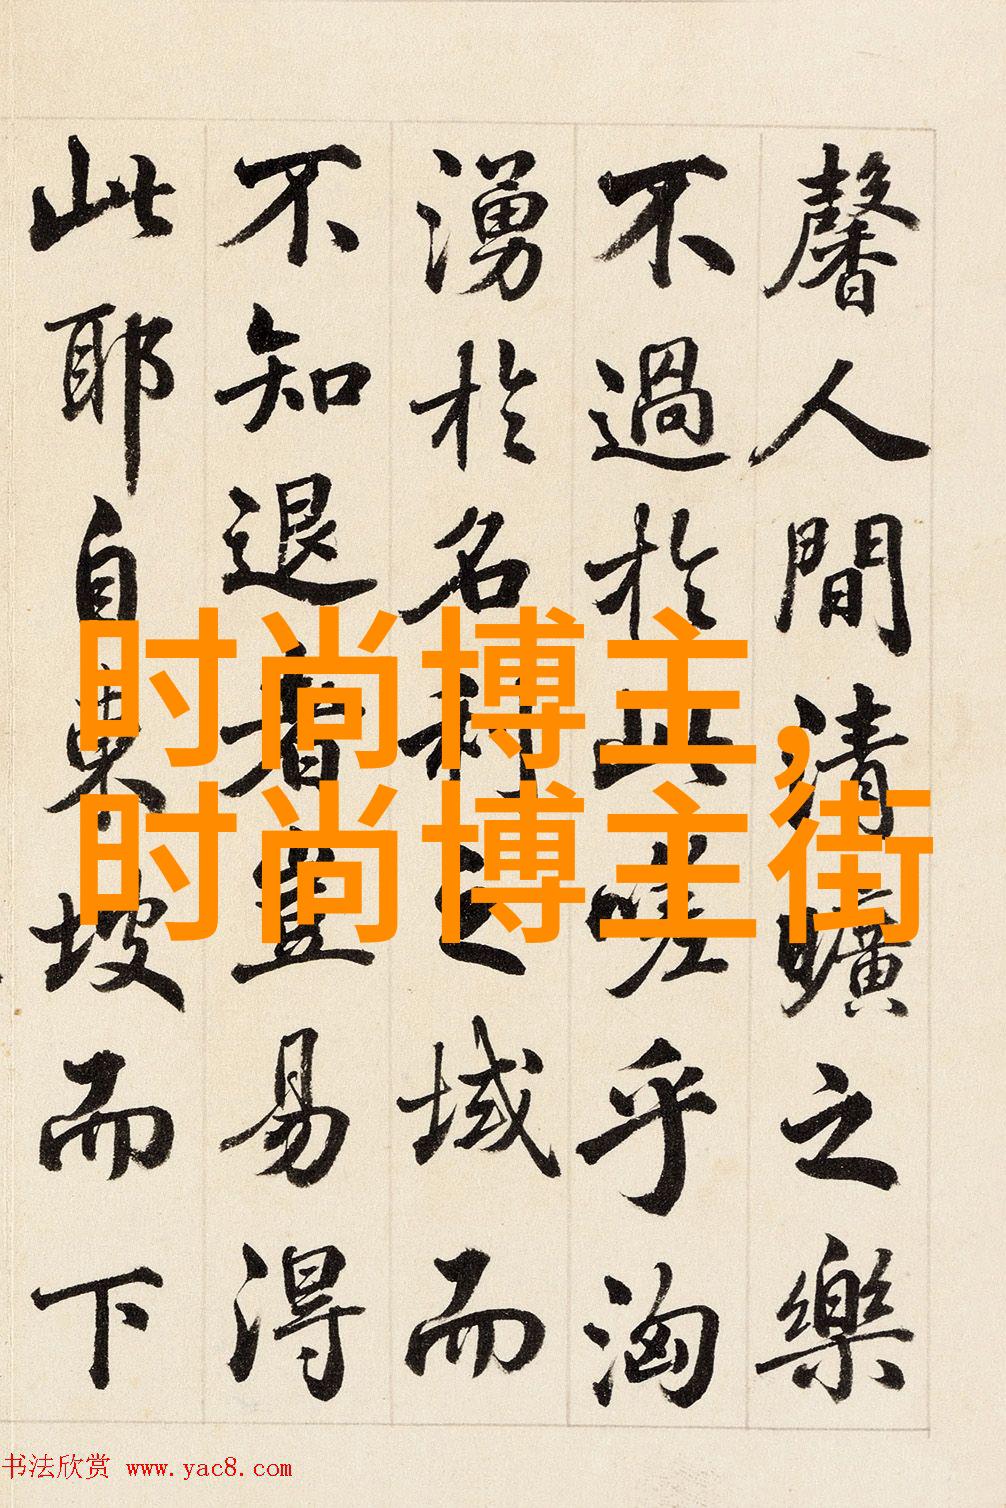 馨人間清曠之樂
不過於此嗟乎洶
湧於名利之域而
不知退者豈易得
此耶自東坡而下
时尚博主，
时尚博主街
书法欣赏 www.yac8.com